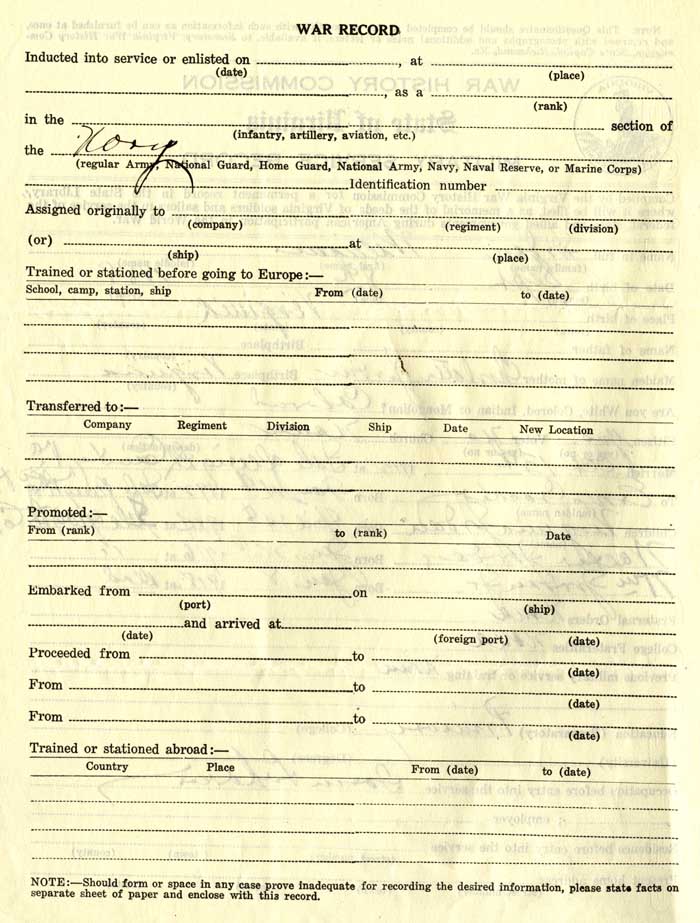 WAR RECORD
Inducted into service or enlisted on , at
(date) (place)
, as a
(rank)
in the section of
(infantry, artillery, aviation, etc.)
the Navy
(regular Army, National Guard, Home Guard, National Army, Navy, Naval Reserve, or Marine Corps)
Identification number
Assigned originally to
(company) (regiment) (division)
(or) at
(ship) (place)
Trained or stationed before going to Europe:—
School, camp, station, ship From (date) to (date)
Transferred to:—
Company Regiment Division Ship Date New Location
Promoted:—
From (rank) to (rank) Date
Embarked from on
(port) (ship)
and arrived at
(date) (foreign port) (date)
Proceeded from to
(date)
From to
(date)
From to
(date)
Trained or stationed abroad:—
Country Place From (date) to (date)
NOTE:—Should form or space in any case prove inadequate for recording the desired information, please state facts on
separate sheet of paper and enclose with this record.